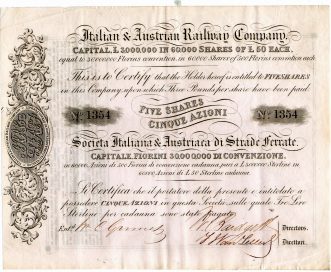 Italian & Austrian Railway Company.
CAPITAL £ 3000.000 IN 60000 SHARES OF £ 50 EACH.
equal to 30000000 Florins convention. in 60000 Shares of 500 Florins convention each
This is to Certify that the Holder hereof is entitled to FIVE SHARES
in this Company, upon which Three Pounds per share have been paid
FIVE SHARES
No 1354
No 1354
CINQUE AZIONI
Societa Italiana & Austriaca di Strade Ferrate.
CAPITALE FIORINI 30.000.000 DI CONVENZIONE.
in 60000 Azioni di 500 Fiorini di convenzione cadauna, pari a £ 3000000 Sterline in
60000 Azioni di £ 50 Sterline cadauna
Si Certifica che il portatore della presente è intitolato a
possedere CINQUE AZIONI in questa Società, sulle quali Tre Lire
Sterline per cadauna sono state pagate
Directors.
Direttori.